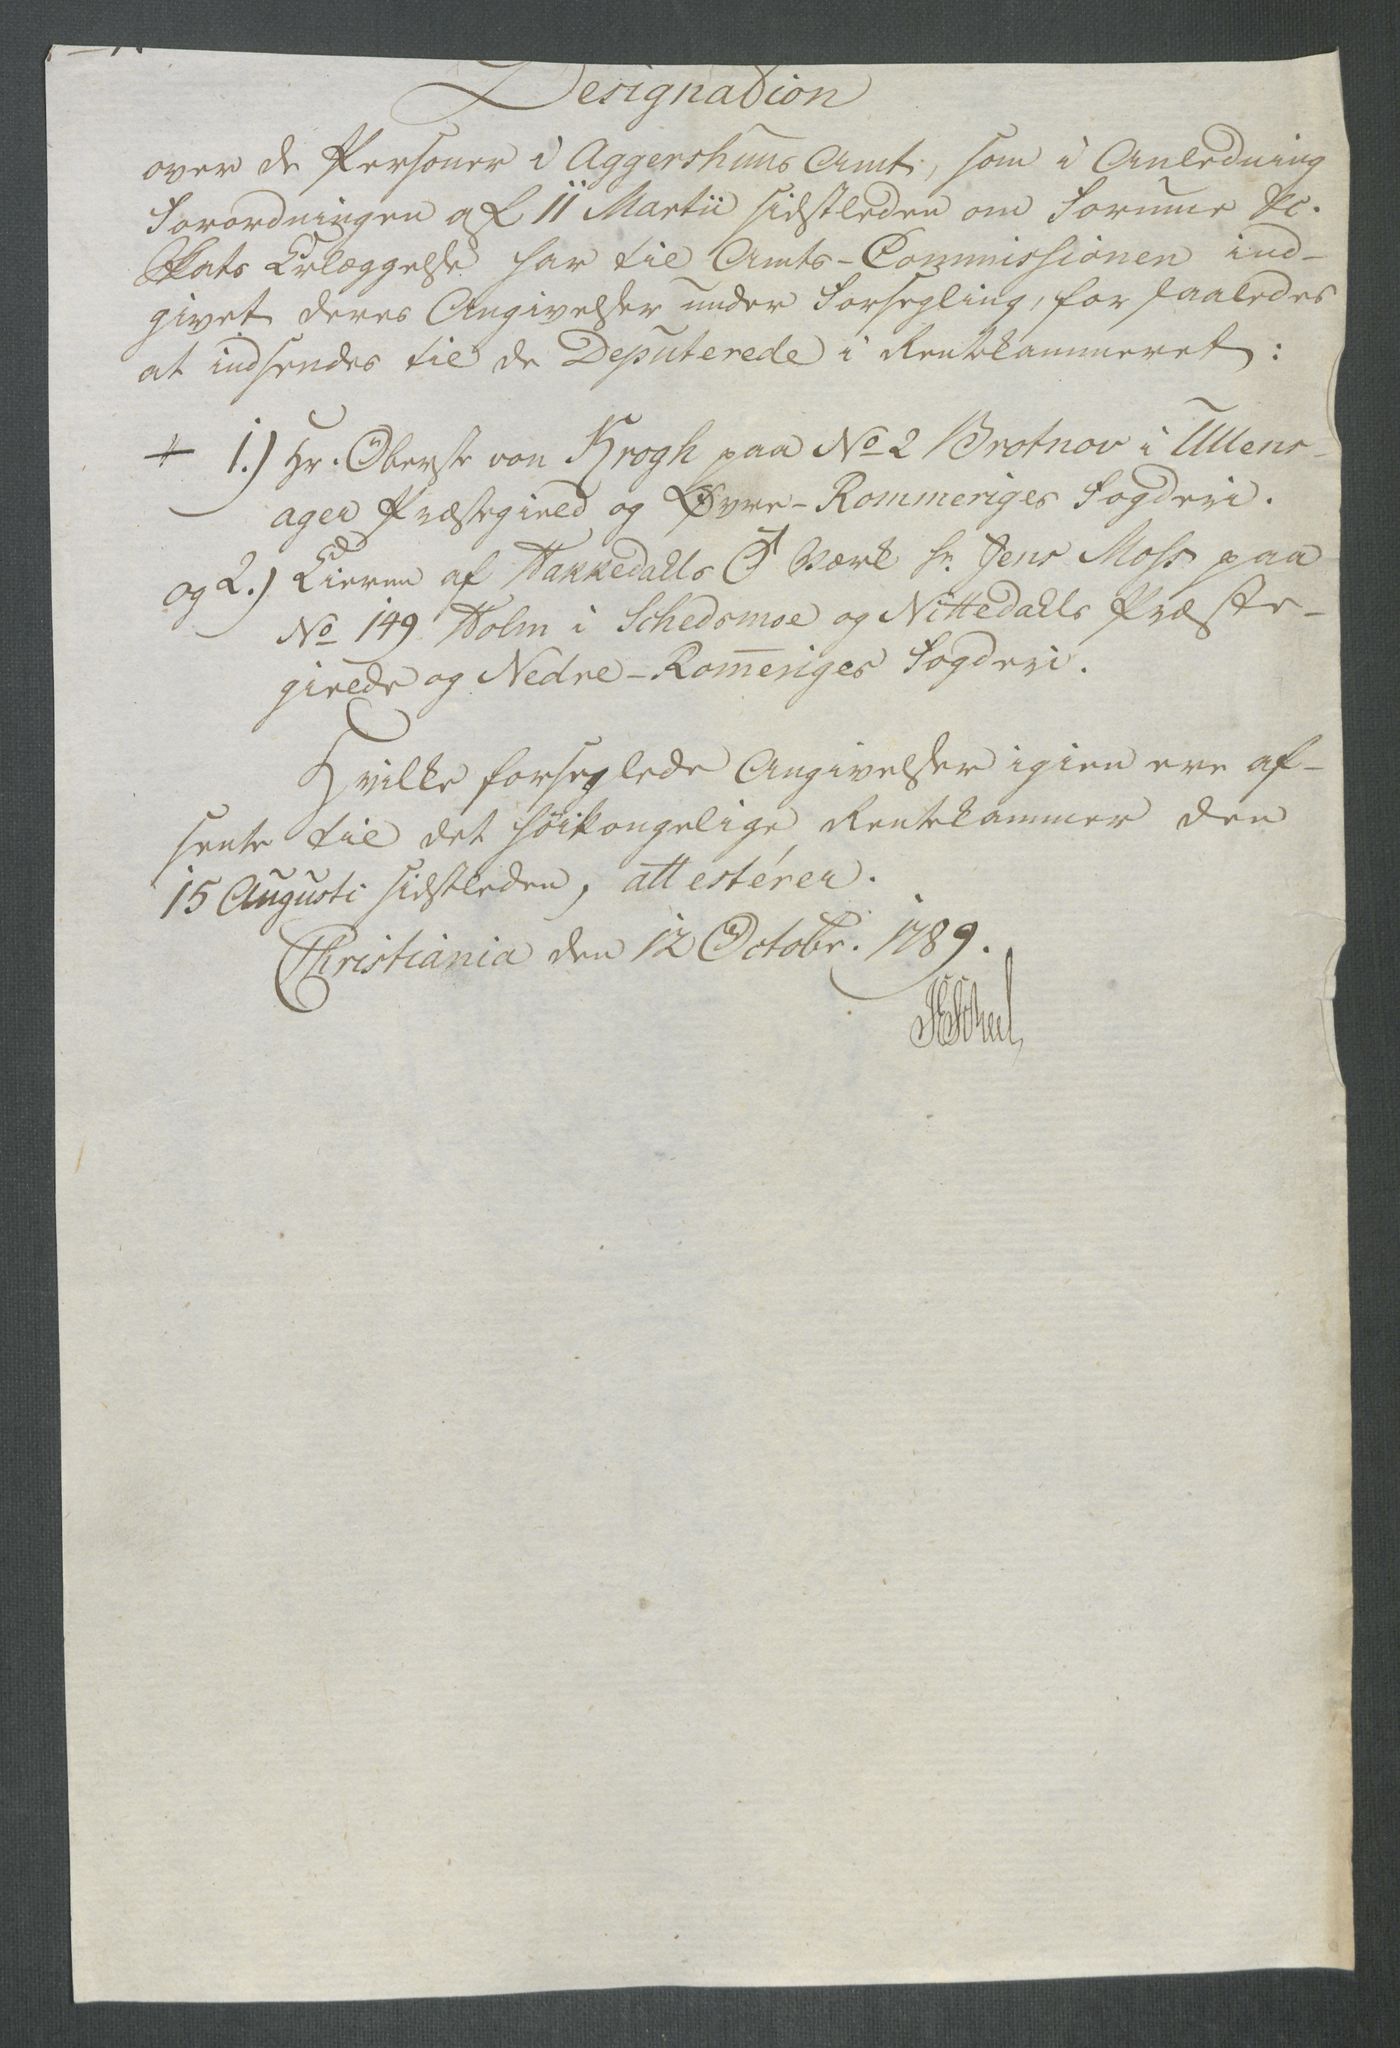 Designation
over de Personer i Aggershuus Amt, som i Anledning
Forordningen af 11 Martii sidstleden om Formue &c.
Skats Erlæggelse har til Amts-Commissionen ind-
givet deres Angivelser under Forsegling, for saaledes
at indsendes til de Deputerede i Rentekammeret:
+ 1.) Hr. Oberste von Krogh paa No 2 Brotnov i Ullens-
ager Præstegield og Øvre-Rommeriges Fogderi.
og 2.) Eieren af Hakkedahls ♂ Værk Hr. Jens Moss paa
No 149 Holm i Schedsmoe og Nittedahls Præste-
gield og Nedre-Rom̄eriges Fogderi.
Hvilke forseglede Angivelser igien ere af-
sente til det høikongelige Rentekammer den
15 Augusti sidstleden, attesterer.
Christiania den 12 Octobr. 1789.